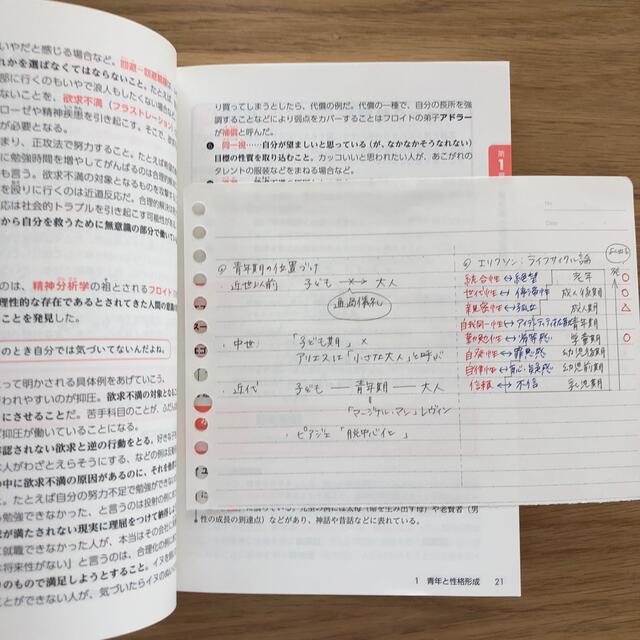 いやだと感じる場合など。回避―回避
れかを選ばなくてはならないこと。たとえば
部に行くのもいやで浪人もしたくない場合な
ないことを、欲求不満（フラストレーション）
ローゼや精神疾患を引き起こす。そこで、
が必要となる。
まり、正攻法で努力すること。たとえば
に勉強時間を増やしてがんばるのは合理的
も言う。欲求不満の対象となるものを攻撃する
を殴りに行くのは近道反応だ。合理的解決
応は社会的トラブルを引き起こす可能性が
から自分を救うために無意識の部分で働いて
のは、精神分析学の祖とされるフロイト
理性的な存在であるとされてきた人間の意識
ことを発見した。
のとき自分では気づいてないんだよね。
よって明かされる具体例をあげていこう。
われやすいのが抑圧。欲求不満の対象となるに
にさせることだ。苦手科目のことが、ふだん
ば抑圧が働いていることになる。
認されない欲求と逆の行動をとる。好きな子
本人がわざとえらそうにする、などの例は反
の中に欲求不満の原因があるのに、それを他
。たとえば自分の努力不足で勉強ができない
ら勉強できなかった、と言うのは投射の例に
が満たされない現実に理屈をつけて納得し
に就職できなかった人が、本当はその会社に
は将来性がない」と言うのは、合理化の例に
りのもので満足しようとすること。イヌを
ことができない人が、気づいたらイヌのぬい
り買ってしまうとしたら、代償の例だ。代償の一種で、自分の長所を強
調することなどにより弱点をカバーすることはフロイトの弟子アドラー
が補償と呼んだ。
❻ 同一視……自分が望ましいと思っている（が、なかなかそうなれない）
目標の性質を取り込むこと。カッコいいと思われたい人が、あこがれの
タレントの服装などをまねる場合など。
第1
No.
Date
◎ 青年期の位置づけ
・近世以前 子ども ←×→ 大人
通過儀礼
・中世 「子ども期」×
アリエスは「小さな大人」と呼ぶ
・近代 子ども ― 青年期 ― 大人
「マージナル・マン」レヴィン
・ピアジェ 「脱中心化」
◎ エリクソン：ライフサイクル論
統合性↔絶望 老年 ○
世代性↔停滞性 成人後期 ○
親密性↔孤立 成人期 △
自我同一性↔アイデンティティ拡散 青年期
勤勉性↔劣等感 学童期 ○
自発性↔罪悪感 幼児後期
自律性↔恥・疑惑 幼児前期
信頼↔不信 乳児期
性の成長の到達点）などがあり、神話や昔話などに表れている。
1 青年と性格形成 21